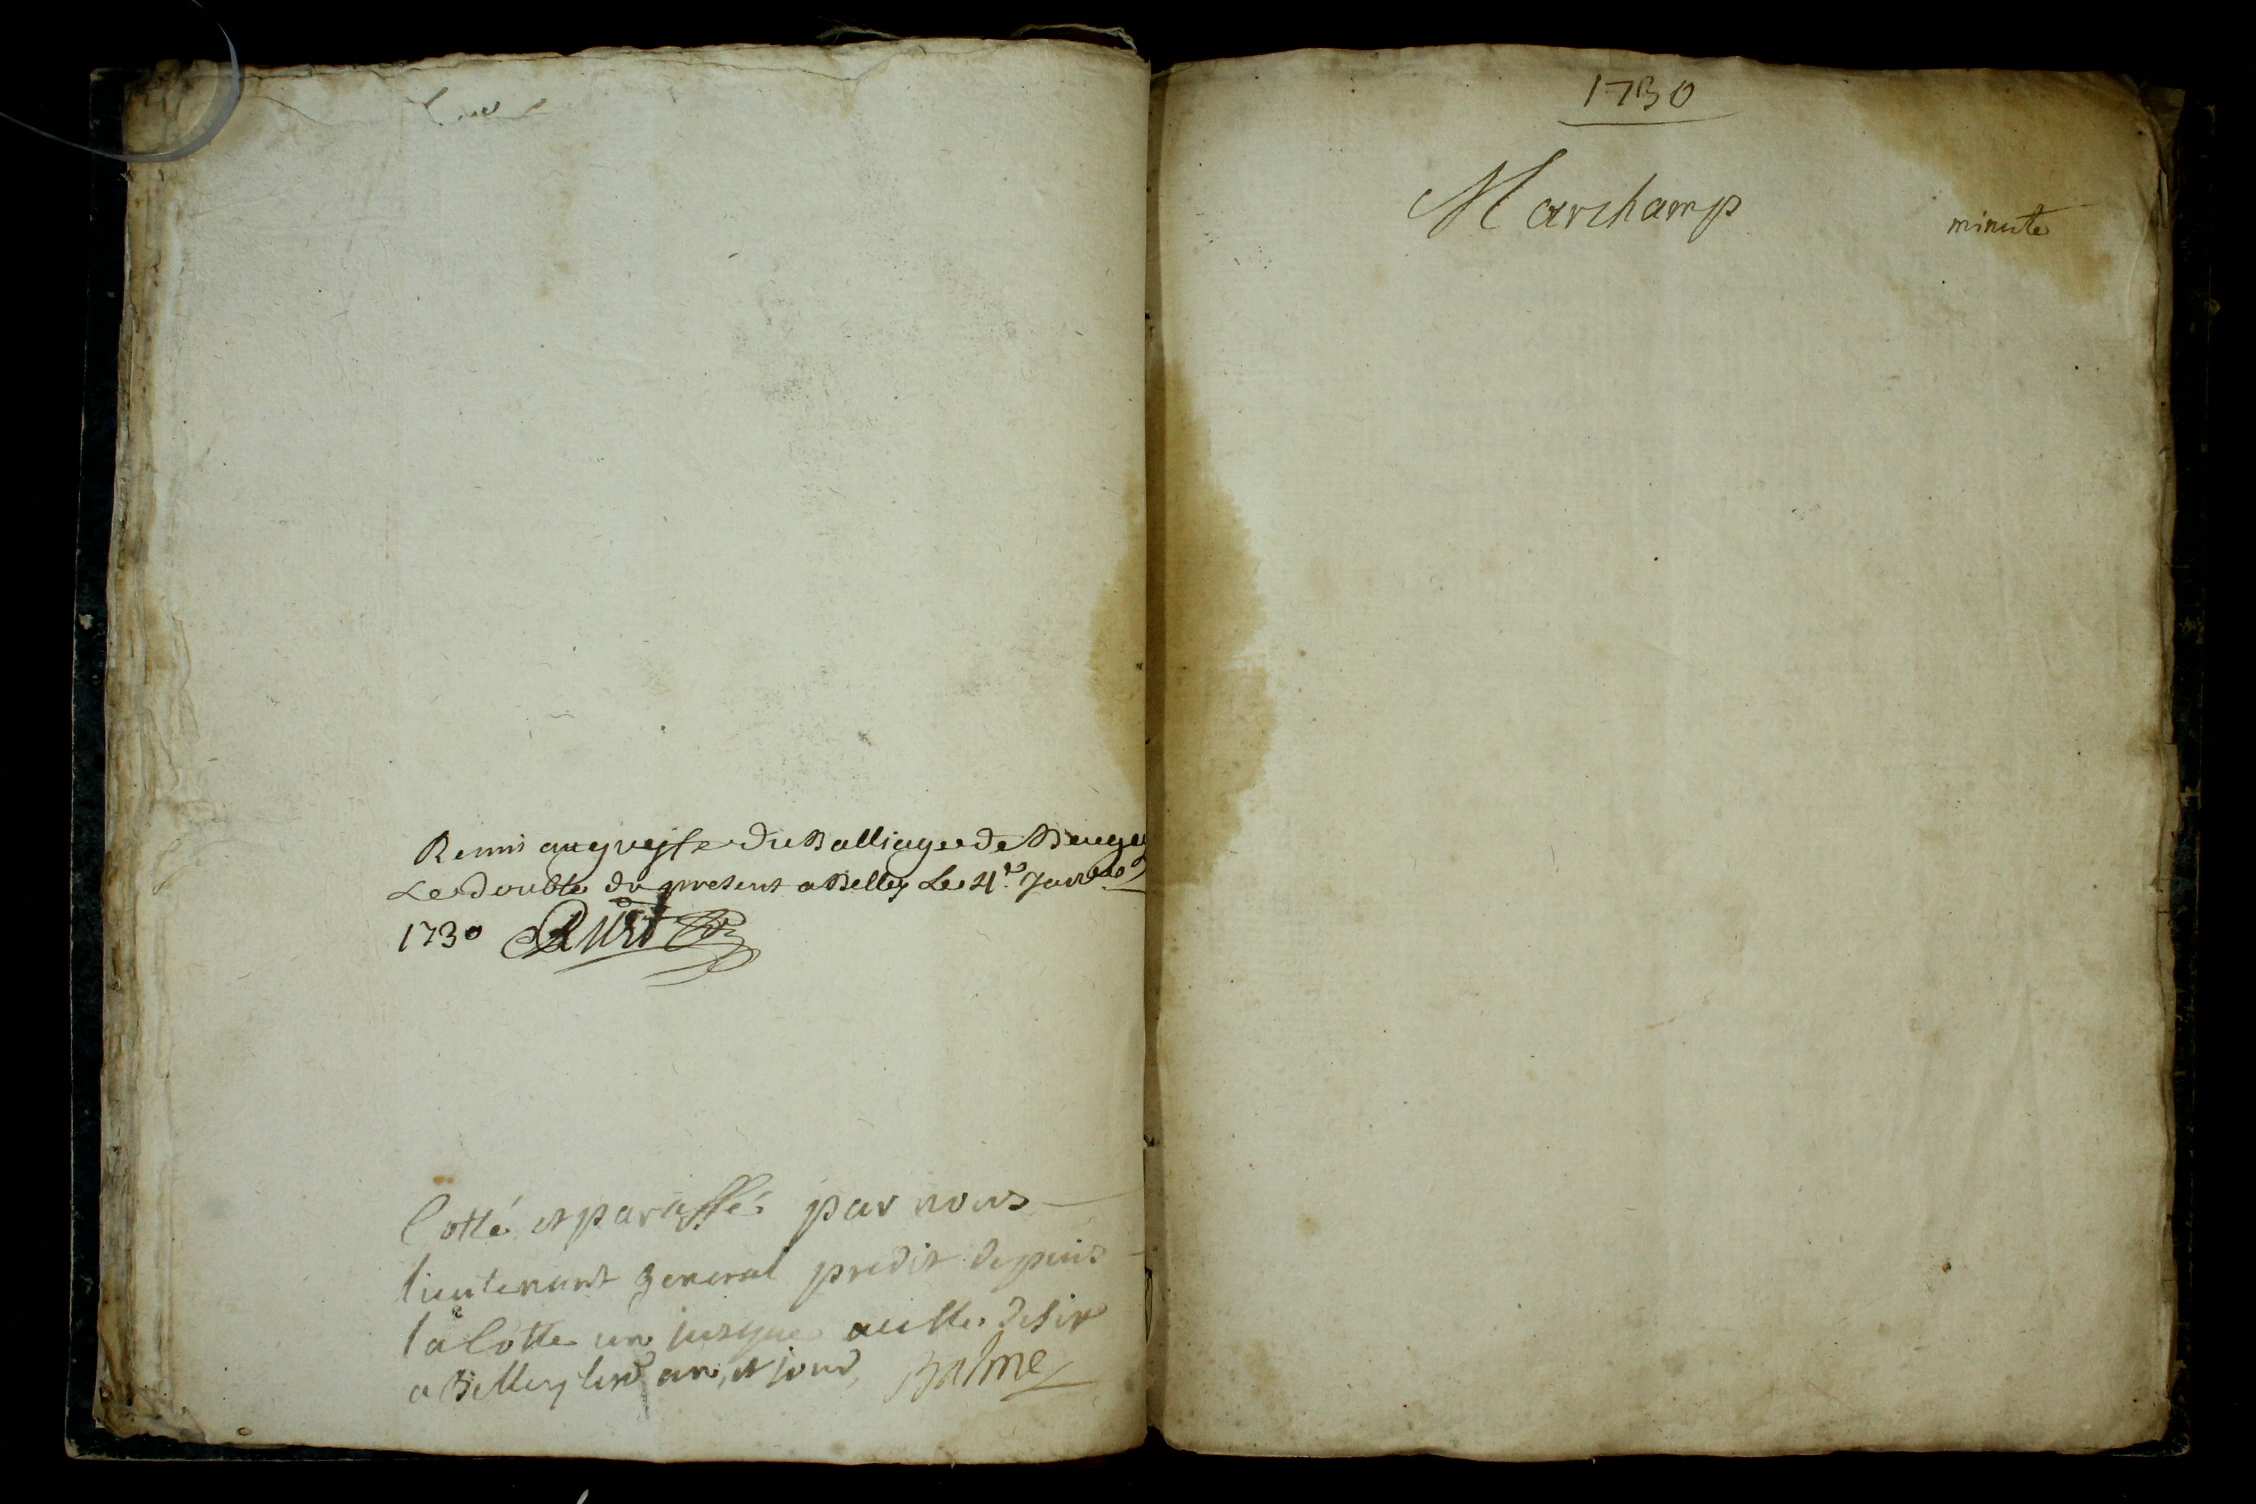 Remis au greffe du Balliage de Beugey
Le double du present a Belley Le 4e Janv
1730
Cotté et paraffé par nous
lieutenant general predit depuis
la Cotte un jusque a
a Belley led an, et jour, Balme
1730
Marchamp
minute